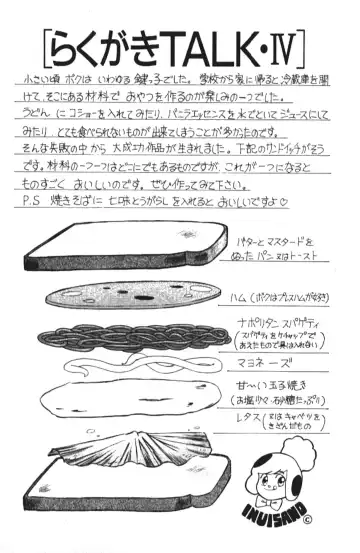 [らくがきTALK・Ⅳ]
小さい頃 ボクは いわゆる 鍵っ子でした。学校から家に帰ると冷蔵庫を開
けて、そこにある材料で おやつを作るのが楽しみの一つでした。
うどん にコショーを入れてみたり、バニラエッセンスを水でといてジュースにして
みたり、とても食べられないものが出来てしまうことが多かたのです。
そんな失敗の中から 大成功作品が生まれました。下記のサンドイッチがそう
です。材料の一つ一つはどこにでもあるものですが、これが一つになると
ものすごく おいしいのです。ぜひ作ってみて下さい。
P.S 焼きそばに 七味とうがらしを入れると おいしいですよ♡
バターとマスタードを
ぬった パン又はトースト
ハム (ボクはプレスハムが好き)
ナポリタン スパゲティ
(スパゲティをケチャップで
あえたもので具は入れない)
マヨネーズ
甘〜い玉子焼き
(お塩少々・砂糖たっぷり)
レタス (又はキャベツを
きざんだもの)
INUISAND
©